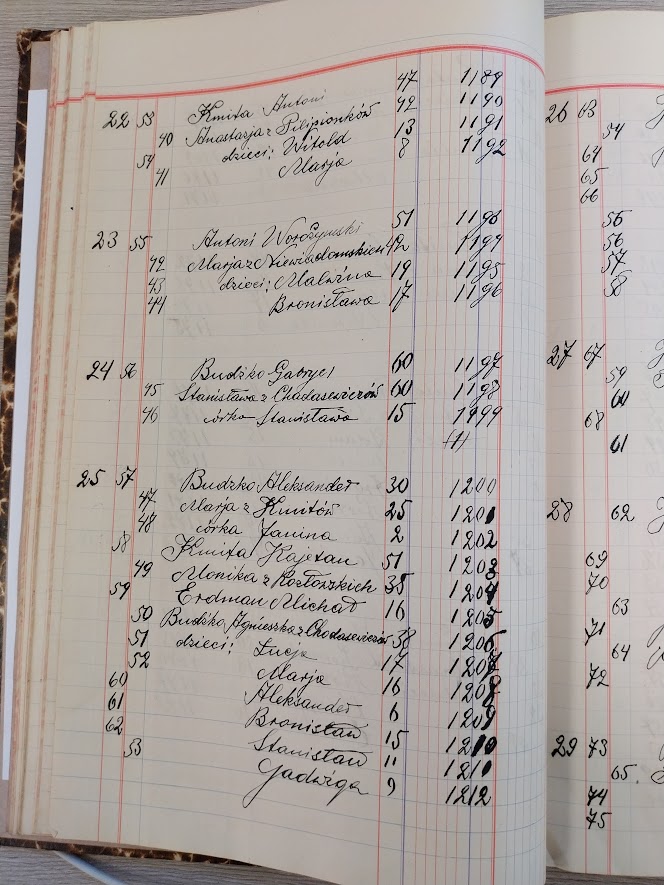 22 53 Kmita Antoni 47 1189
40 Anastazja z Pilipionków 42 1190
dzieci: Witold 13 1191
54 41 Marja 8 1192
23 55 Antoni Worożyński 51
42 Marja z Niewiadomskich 42
43 dzieci: Malwina 19 1195
44 Bronisława 17 1196
24 56 Budźko Gabryel 60 1197
45 Stanisława z Chadasewiczów 60 1198
46 córka Stanisława 15 1199
25 57 Budzko Aleksander 30 1200
47 Marja z Kmitów 25 1201
48 córka Janina 2 1202
58 Kmita Kajetan 51 1203
49 Monika z Kozłowskich 35 1204
59 Erdman Michał 16 1205
50 Budźko Agnieszka z Chodasewiczów 38 1206
51 dzieci: Łucja 17 1207
52 Marja 16
60 Aleksander 6 1209
61 Bronisław 15 1210
62 Stanisław 11
53 Jadwiga 9 1212
26 63
54
64
65
66
55
56
57
58
27 67
59
60
68
61
28 62
69
70
63
71
64
72
29 73
65
74
75